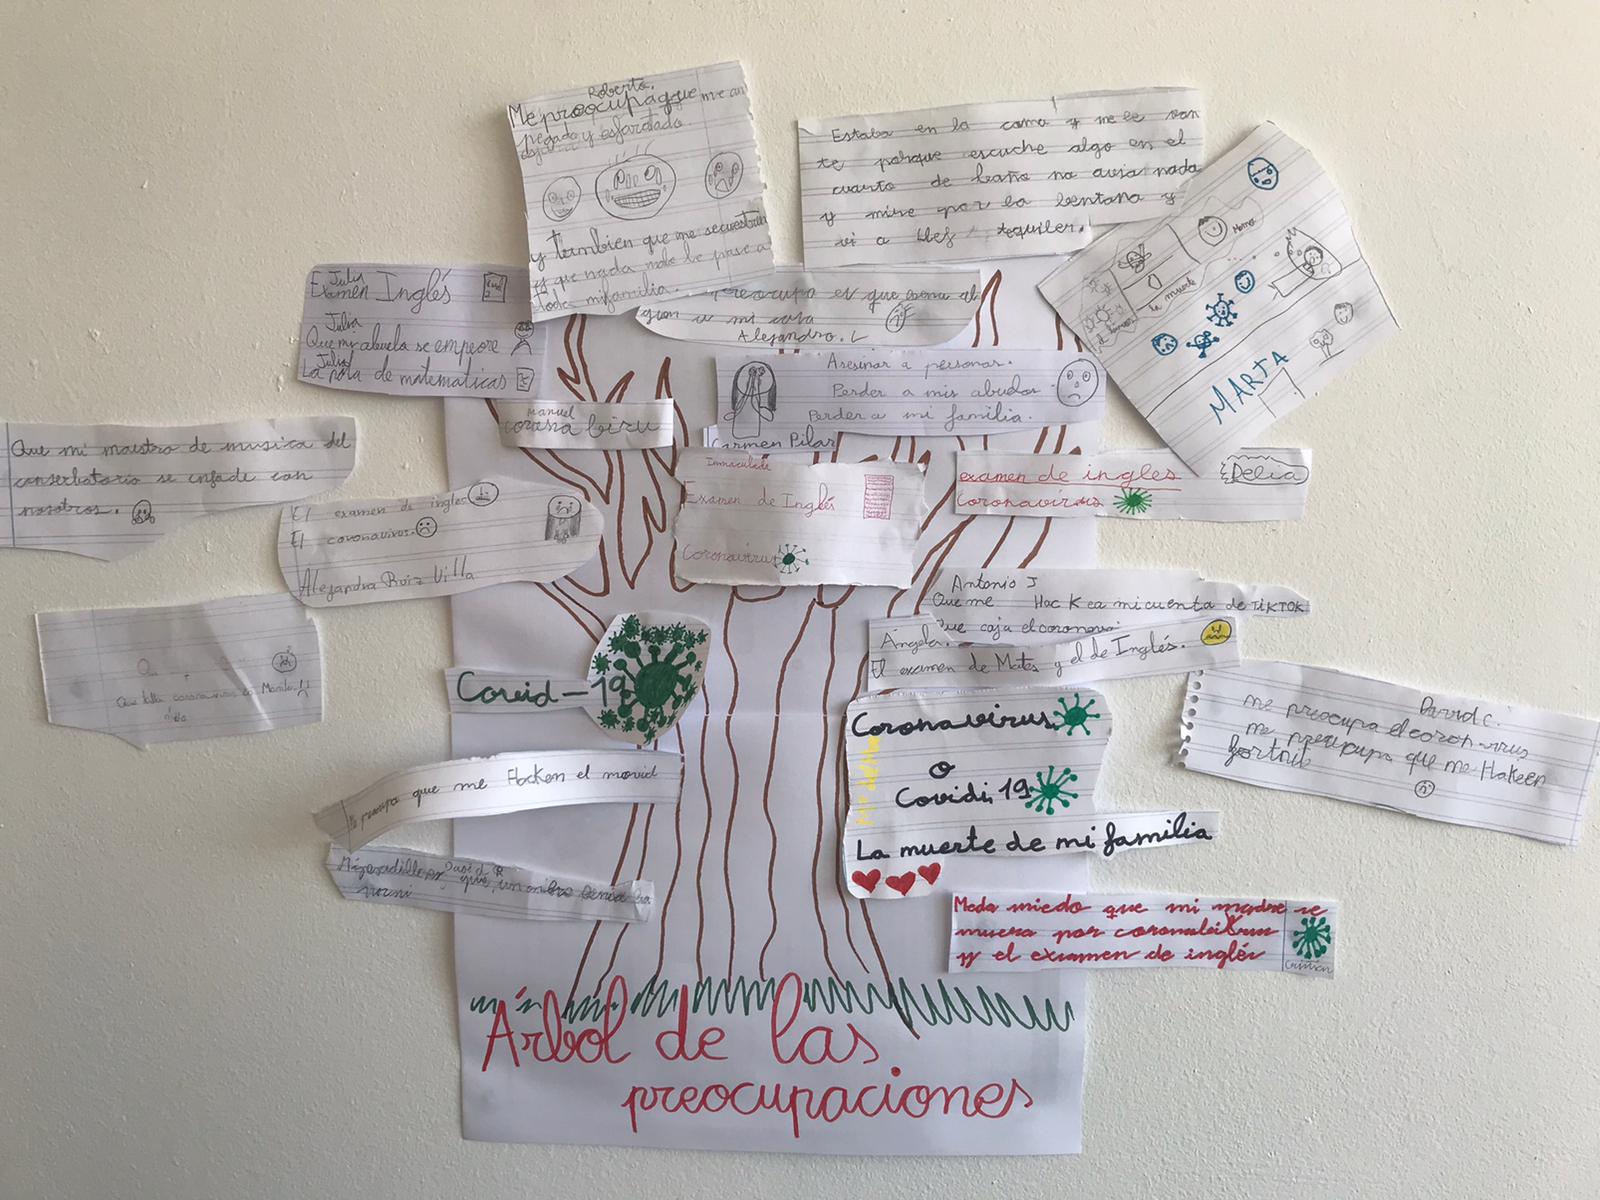 Roberto.
Me preocupa que me an
pegado y
y tambien que me secuestren
y que nada malo le pase a
toda mi familia.
Estaba en la cama y me le van
te porque escuche algo en el
cuarto de baño no avia nada
y mire por la bentana y
vi a
Momo
la muerte
MARTA
Julia
Examen Inglés
Julia
Que mi abuela se empeore
Julia
La nota de matematicas
preocupa es que
a mi casa
Alejandro. L
Asesinar a personas.
Perder a mis abuelos
Perder a mi familia.
Carmen Pilar
Manuel
corona biru
Que mi maestra de musica del
conserbatorio se enfade con
nosotros.
El examen de ingles
El coronavirus.
Alejandra Ruiz Villa
Inmaculada
Examen de Inglés
Coronavirus
examen de ingles
Delia
coronavirus
Antonio J
Que me Hac K ea mi cuenta de TIKTOK
Que coja el corona
Angela.
El examen de Mates y el de Inglés.
Covid-19
Coronavirus
o
Covid 19
La muerte de mi familia
David C.
me preocupa el
me que me Hakeen
fortnit
Me preocupa que me Hacken el movid
David R
Meda miedo que mi madre se
muera por
y el examen de inglés
Cristian
Árbol de las
preocupaciones